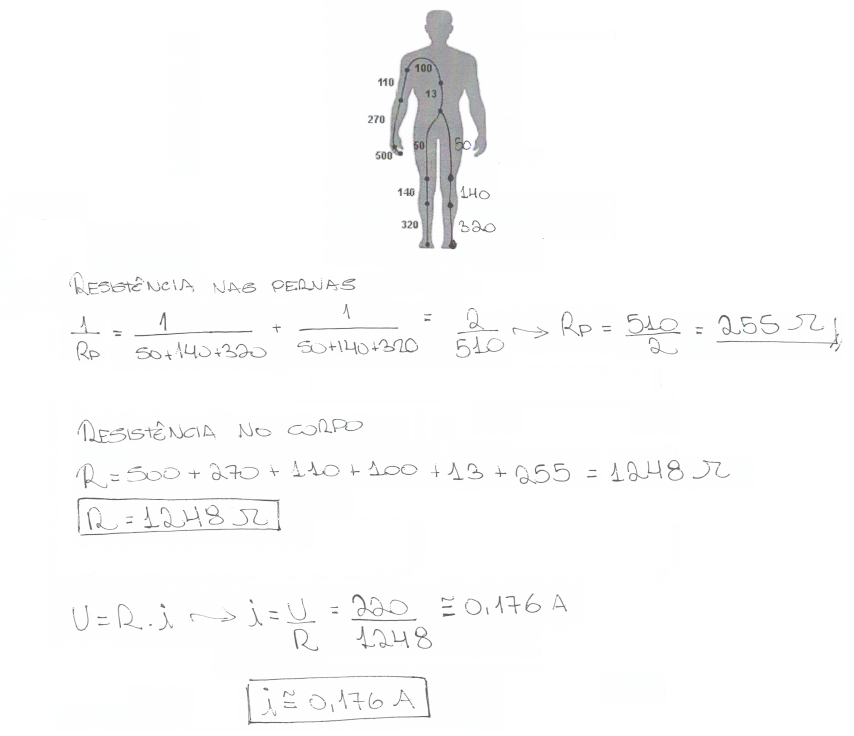 100
110
13
270
50 50
500
140 140
320 320
RESISTÊNCIA NAS PERNAS
1/Rp = 1/(50+140+320) + 1/(50+140+320) = 2/510 ⇝ Rp = 510/2 = 255 Ω
RESISTÊNCIA NO CORPO
R = 500 + 270 + 110 + 100 + 13 + 255 = 1248 Ω
R = 1248 Ω
U = R . i ⇝ i = U/R = 220/1248 ≅ 0,176 A
i ≅ 0,176 A